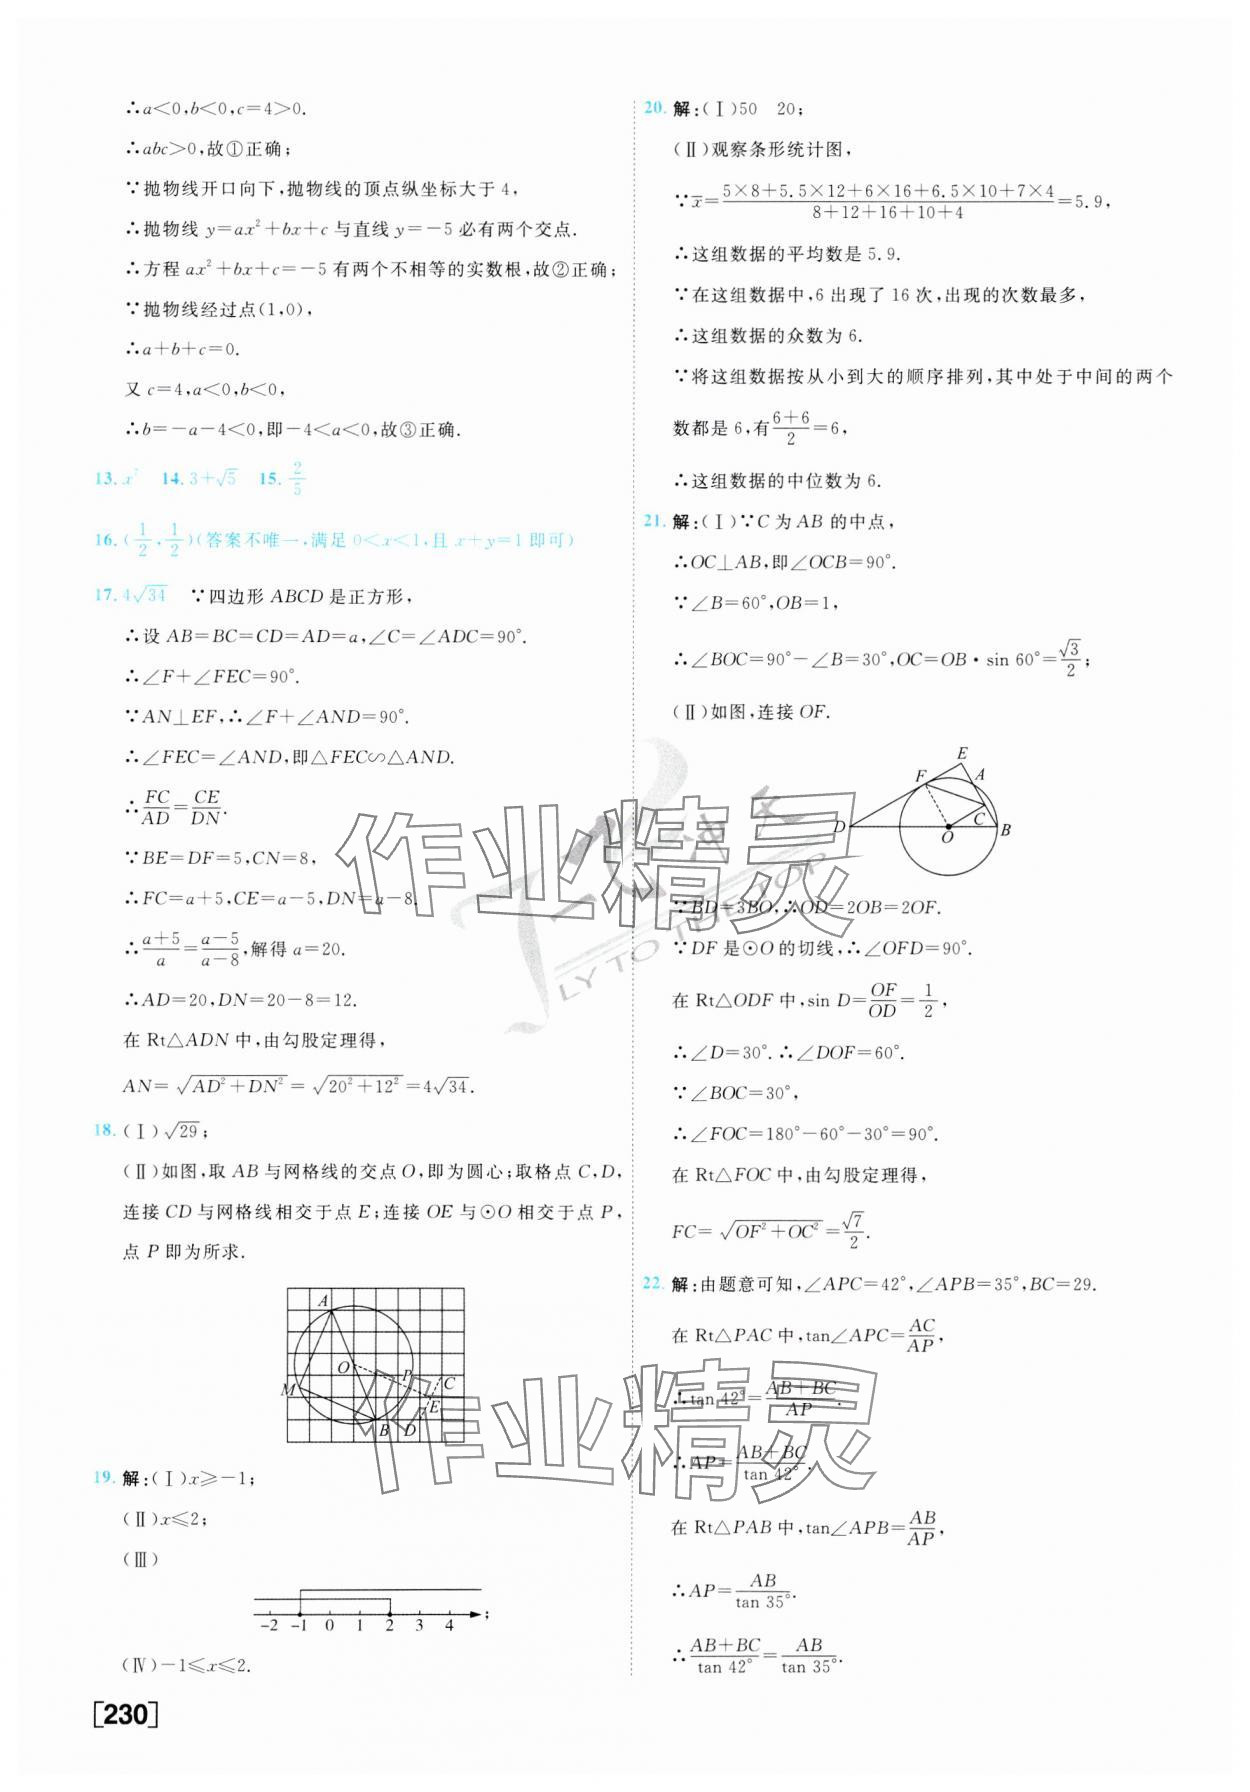 ∴a<0,b<0,c=4>0.
∴abc>0,故①正确;
∵抛物线开口向下,抛物线的顶点纵坐标大于4,
∴抛物线 y=ax²+bx+c 与直线 y=-5 必有两个交点.
∴方程 ax²+bx+c=-5 有两个不相等的实数根,故②正确;
∵抛物线经过点(1,0),
∴a+b+c=0.
又 c=4,a<0,b<0,
∴b=-a-4<0,即-4<a<0,故③正确.
13. x⁷ 14. 3+√5 15. 2/5
16. (1/2,1/2)(答案不唯一,满足 0<x<1,且 x+y=1 即可)
17. 4√34 ∵四边形 ABCD 是正方形,
∴设 AB=BC=CD=AD=a,∠C=∠ADC=90°.
∴∠F+∠FEC=90°.
∵AN⊥EF,∴∠F+∠AND=90°.
∴∠FEC=∠AND,即△FEC∽△AND.
∴FC/AD=CE/DN.
∵BE=DF=5,CN=8,
∴FC=a+5,CE=a-5,DN=a-8.
∴(a+5)/a=(a-5)/(a-8),解得 a=20.
∴AD=20,DN=20-8=12.
在 Rt△ADN 中,由勾股定理得,
AN=√(AD²+DN²)=√(20²+12²)=4√34.
18. (Ⅰ)√29;
(Ⅱ)如图,取 AB 与网格线的交点 O,即为圆心;取格点 C,D,
连接 CD 与网格线相交于点 E;连接 OE 与⊙O 相交于点 P,
点 P 即为所求.
A
O
P
C
M
E
B D
19. 解:(Ⅰ)x≥-1;
(Ⅱ)x≤2;
(Ⅲ)
-2 -1 0 1 2 3 4 ;
(Ⅳ)-1≤x≤2.
[230]
20. 解:(Ⅰ)50 20;
(Ⅱ)观察条形统计图,
∵x̄=(5×8+5.5×12+6×16+6.5×10+7×4)/(8+12+16+10+4)=5.9,
∴这组数据的平均数是 5.9.
∵在这组数据中,6 出现了 16 次,出现的次数最多,
∴这组数据的众数为 6.
∵将这组数据按从小到大的顺序排列,其中处于中间的两个
数都是 6,有(6+6)/2=6,
∴这组数据的中位数为 6.
21. 解:(Ⅰ)∵C 为 AB 的中点,
∴OC⊥AB,即∠OCB=90°.
∵∠B=60°,OB=1,
∴∠BOC=90°-∠B=30°,OC=OB·sin 60°=√3/2;
(Ⅱ)如图,连接 OF.
E
F A
C
D O B
∵BD=3BO,∴OD=2OB=2OF.
∵DF 是⊙O 的切线,∴∠OFD=90°.
在 Rt△ODF 中,sin D=OF/OD=1/2,
∴∠D=30°.∴∠DOF=60°.
∵∠BOC=30°,
∴∠FOC=180°-60°-30°=90°.
在 Rt△FOC 中,由勾股定理得,
FC=√(OF²+OC²)=√7/2.
22. 解:由题意可知,∠APC=42°,∠APB=35°,BC=29.
在 Rt△PAC 中,tan∠APC=AC/AP,
∴tan 42°=(AB+BC)/AP.
∴AP=(AB+BC)/tan 42°.
在 Rt△PAB 中,tan∠APB=AB/AP,
∴AP=AB/tan 35°.
∴(AB+BC)/tan 42°=AB/tan 35°.
作业精灵
FLY TO THE TOP
作业精灵